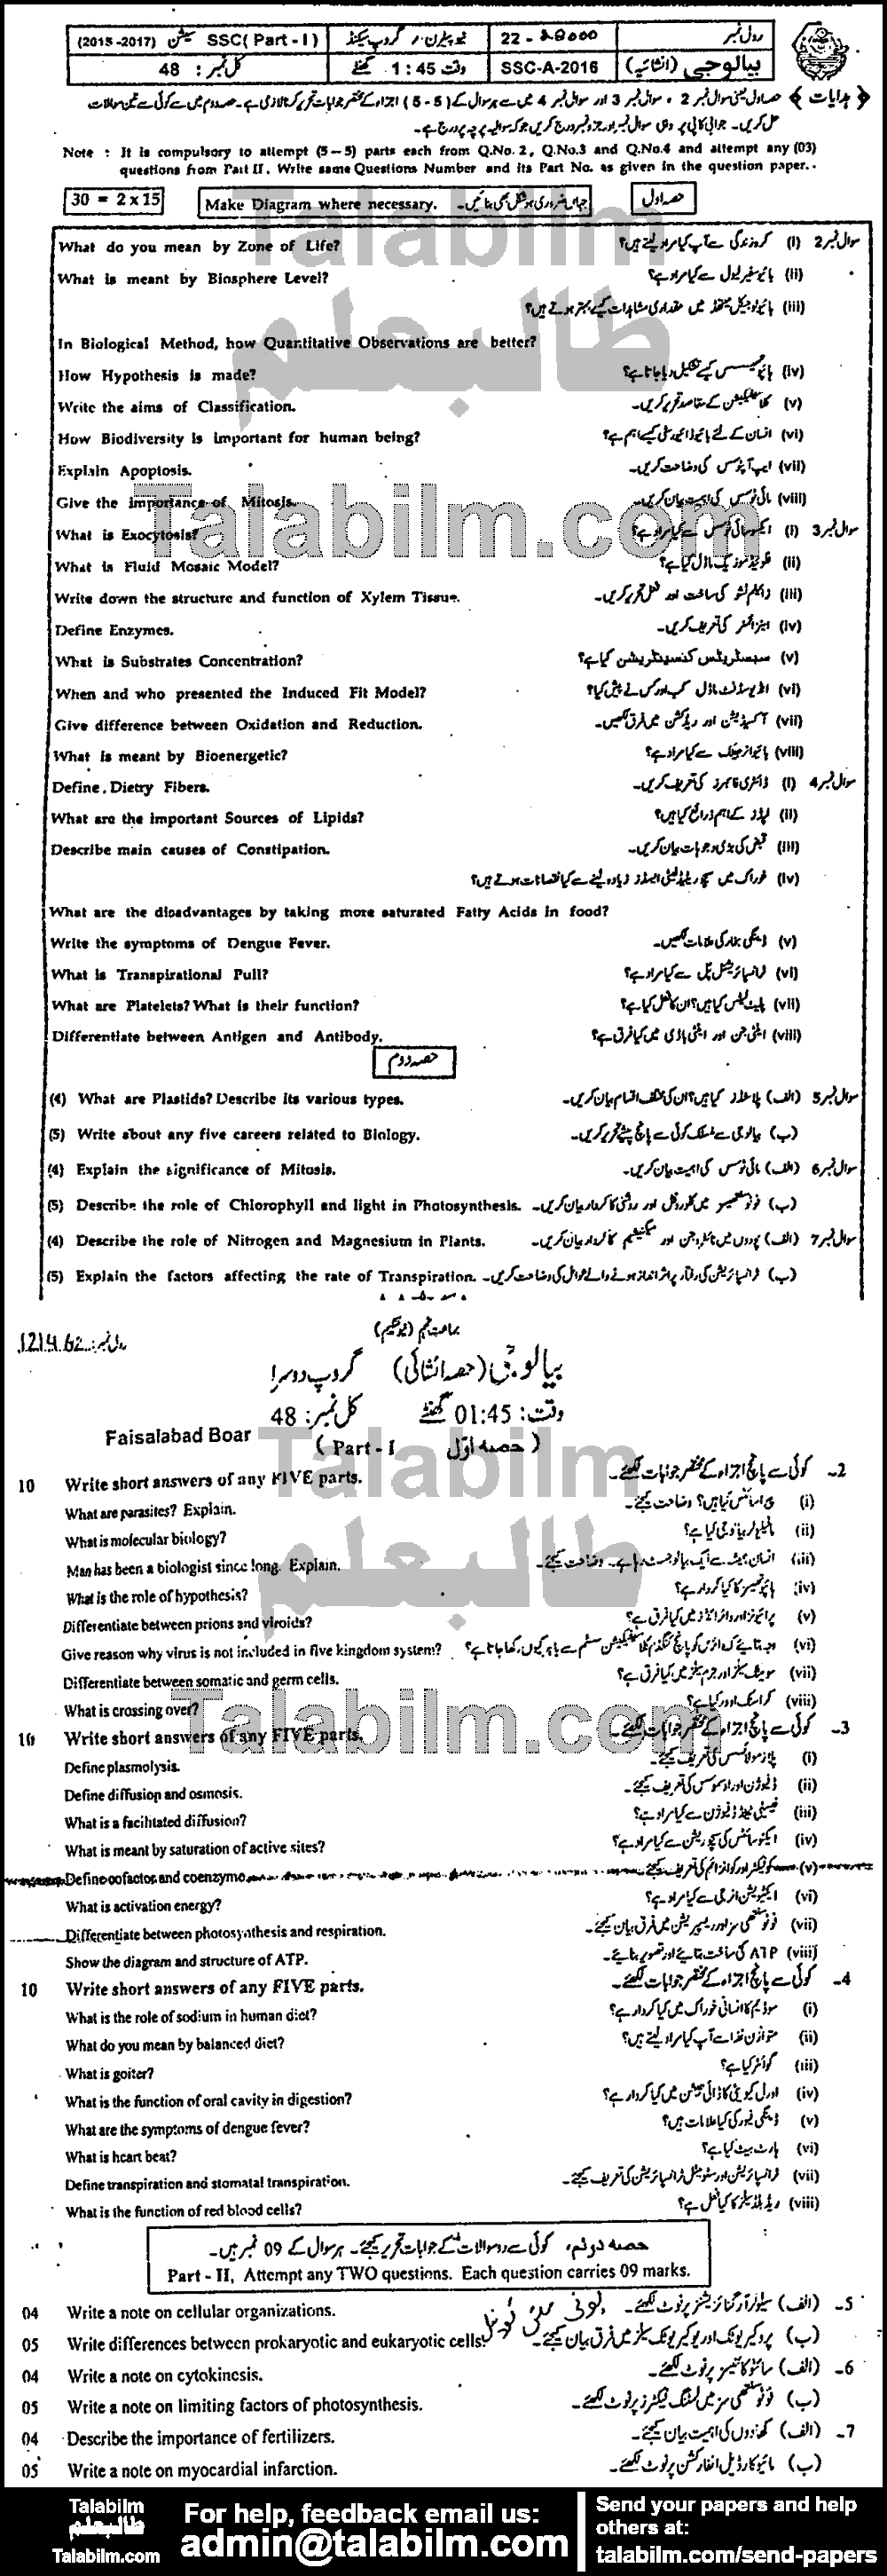 رول نمبر 22 - نیو پیٹرن / گروپ سیکنڈ SSC( Part - I ) سیشن (2015-2017)
بیالوجی (انشائیہ) SSC-A-2016 وقت 1:45 گھنٹے کل نمبر: 48
﴿ ہدایات ﴾ حصہ اول یعنی سوال نمبر 2 ، سوال نمبر 3 اور سوال نمبر 4 میں سے ہر سوال کے (5 - 5) اجزاء کے مختصر جوابات تحریر کرنا لازمی ہے۔ حصہ دوم میں سے کوئی سے تین سوالات
حل کریں۔ جوابی کاپی پر وہی سوال نمبر اور جزو نمبر درج کریں جو کہ سوالیہ پرچہ پر درج ہے۔
Note : It is compulsory to attempt (5-5) parts each from Q.No. 2, Q.No.3 and Q.No.4 and attempt any (03)
questions from Part II. Write same Questions Number and its Part No. as given in the question paper.
30 = 2 x 15 Make Diagram where necessary. جہاں ضروری ہو شکل بھی بنائیں۔ حصہ اول
Talabilm
طالبعلم
What do you mean by Zone of Life? سوال نمبر 2 (i) کرہ زندگی سے آپ کیا مراد لیتے ہیں؟
What is meant by Biosphere Level? (ii) بائیوسفیر لیول سے کیا مراد ہے؟
(iii) بائیولوجیکل میتھڈ میں مقداری مشاہدات کیسے بہتر ہوتے ہیں؟
In Biological Method, how Quantitative Observations are better?
How Hypothesis is made? (iv) ہائپوتھیسس کیسے تشکیل دیا جاتا ہے؟
Write the aims of Classification. (v) کلاسیفکیشن کے مقاصد تحریر کریں۔
How Biodiversity is important for human being? (vi) انسان کے لئے بائیوڈائیورسٹی کیسے اہم ہے؟
Explain Apoptosis. (vii) ایپ آپٹوسس کی وضاحت کریں۔
Give the importance of Mitosis. (viii) مائی ٹوسس کی اہمیت بیان کریں۔
Talabilm.com
What is Exocytosis? سوال نمبر 3 (i) ایکسوسائی ٹوسس سے کیا مراد ہے؟
What is Fluid Mosaic Model? (ii) فلوئیڈ موزیک ماڈل کیا ہے؟
Write down the structure and function of Xylem Tissue. (iii) زائیلم ٹشو کی ساخت اور فعل تحریر کریں۔
Define Enzymes. (iv) اینزائمز کی تعریف کریں۔
What is Substrates Concentration? (v) سبسٹریٹس کنسینٹریشن کیا ہے؟
When and who presented the Induced Fit Model? (vi) انڈیوسڈ فٹ ماڈل کب اور کس نے پیش کیا؟
Give difference between Oxidation and Reduction. (vii) آکسیڈیشن اور ریڈکشن میں فرق لکھیں۔
What is meant by Bioenergetic? (viii) بائیوانرجیٹک سے کیا مراد ہے؟
Define. Dietry Fibers. سوال نمبر 4 (i) ڈائٹری فائبرز کی تعریف کریں۔
What are the important Sources of Lipids? (ii) لپڈز کے اہم ذرائع کیا ہیں؟
Describe main causes of Constipation. (iii) قبض کی بڑی وجوہات بیان کریں۔
(iv) خوراک میں سچوریٹڈ فیٹی ایسڈز زیادہ لینے سے کیا نقصانات ہوتے ہیں؟
What are the disadvantages by taking more saturated Fatty Acids in food?
Write the symptoms of Dengue Fever. (v) ڈینگی بخار کی علامات لکھیں۔
What is Transpirational Pull? (vi) ٹرانسپائریشنل پُل سے کیا مراد ہے؟
What are Platelets? What is their function? (vii) پلیٹ لیٹس کیا ہیں؟ ان کا فعل کیا ہے؟
Differentiate between Antigen and Antibody. (viii) اینٹی جن اور اینٹی باڈی میں کیا فرق ہے؟
حصہ دوم
(4) What are Plastids? Describe its various types. سوال نمبر 5 (الف) پلاسٹڈز کیا ہیں؟ ان کی مختلف اقسام بیان کریں۔
(5) Write about any five careers related to Biology. (ب) بیالوجی سے منسلک کوئی سے پانچ پیشے تحریر کریں۔
(4) Explain the significance of Mitosis. سوال نمبر 6 (الف) مائی ٹوسس کی اہمیت بیان کریں۔
(5) Describe the role of Chlorophyll and light in Photosynthesis. (ب) فوٹوسنتھیسز میں کلوروفل اور روشنی کا کردار بیان کریں۔
(4) Describe the role of Nitrogen and Magnesium in Plants. سوال نمبر 7 (الف) پودوں میں نائٹروجن اور میگنیشیم کا کردار بیان کریں۔
(5) Explain the factors affecting the rate of Transpiration. (ب) ٹرانسپائریشن کی رفتار پر اثر انداز ہونے والے عوامل کی وضاحت کریں۔
جماعت نہم (نیو سکیم)
رول نمبر: 121462
بیالوجی (حصہ انشائی) گروپ دوسرا
وقت: 01:45 گھنٹے کل نمبر: 48
Faisalabad Boar
(Part - I حصہ اوّل)
Talabilm
طالبعلم
10 Write short answers of any FIVE parts. 2- کوئی سے پانچ اجزاء کے مختصر جوابات لکھئے۔
What are parasites? Explain. (i) پیراسائٹس کیا ہیں؟ وضاحت کیجئے۔
What is molecular biology? (ii) مالیکیولر بیالوجی کیا ہے؟
Man has been a biologist since long. Explain. (iii) انسان ہمیشہ سے ایک بیالوجسٹ رہا ہے۔ وضاحت کیجئے۔
What is the role of hypothesis? (iv) ہائپوتھیسز کا کیا کردار ہے؟
Differentiate between prions and viroids? (v) پرائیونز اور وائرائڈز میں کیا فرق ہے؟
Give reason why virus is not included in five kingdom system? (vi) وجہ بتائیے کہ وائرس کو پانچ کنگڈم کلاسیفکیشن سسٹم سے باہر کیوں رکھا جاتا ہے؟
Differentiate between somatic and germ cells. (vii) سومیٹک سیلز اور جرم سیلز میں کیا فرق ہے؟
What is crossing over? (viii) کراسنگ اوور کیا ہے؟
Talabilm.com
10 Write short answers of any FIVE parts. 3- کوئی سے پانچ اجزاء کے مختصر جوابات لکھئے۔
Define plasmolysis. (i) پلازمولائسس کی تعریف کیجئے۔
Define diffusion and osmosis. (ii) ڈفیوژن اور اوسموسس کی تعریف کیجئے۔
What is a facilitated diffusion? (iii) فیسلی ٹیٹڈ ڈفیوژن سے کیا مراد ہے؟
What is meant by saturation of active sites? (iv) ایکٹو سائٹس کی سچوریشن سے کیا مراد ہے؟
Define cofactor and coenzyme. (v) کوفیکٹر اور کو انزائم کی تعریف کیجئے۔
What is activation energy? (vi) ایکٹیویشن انرجی سے کیا مراد ہے؟
Differentiate between photosynthesis and respiration. (vii) فوٹوسنتھی سز اور ریسپریشن میں فرق بیان کیجئے۔
Show the diagram and structure of ATP. (viii) ATP کی ساخت بتائیے اور تصویر بنائیے۔
10 Write short answers of any FIVE parts. 4- کوئی سے پانچ اجزاء کے مختصر جوابات لکھئے۔
What is the role of sodium in human diet? (i) سوڈیم کا انسانی خوراک میں کیا کردار ہے؟
What do you mean by balanced diet? (ii) متوازن غذا سے آپ کیا مراد لیتے ہیں؟
What is goiter? (iii) گوائٹر کیا ہے؟
What is the function of oral cavity in digestion? (iv) اورل کیویٹی کا ڈائی جیشن میں کیا کردار ہے؟
What are the symptoms of dengue fever? (v) ڈینگی فیور کی کیا علامات ہیں؟
What is heart beat? (vi) ہارٹ بیٹ کیا ہے؟
Define transpiration and stomatal transpiration. (vii) ٹرانسپائریشن اور سٹومیٹل ٹرانسپائریشن کی تعریف کیجئے۔
What is the function of red blood cells? (viii) ریڈ بلڈ سیلز کا کیا فعل ہے؟
حصہ دوئم، کوئی سے دو سوالات کے جوابات تحریر کیجئے۔ ہر سوال کے 09 نمبر ہیں۔
Part - II, Attempt any TWO questions. Each question carries 09 marks.
04 Write a note on cellular organizations. 5- (الف) سیلولر آرگنائزیشنز پر نوٹ لکھئے۔
05 Write differences between prokaryotic and eukaryotic cells. (ب) پروکیریوٹک اور یوکیریوٹک سیلز میں فرق بیان کیجئے۔
04 Write a note on cytokinesis. 6- (الف) سائٹوکائنیسز پر نوٹ لکھئے۔
05 Write a note on limiting factors of photosynthesis. (ب) فوٹوسنتھی سز میں لمٹنگ فیکٹرز پر نوٹ لکھئے۔
04 Describe the importance of fertilizers. 7- (الف) کھادوں کی اہمیت بیان کیجئے۔
05 Write a note on myocardial infarction. (ب) مائیوکارڈیل انفارکشن پر نوٹ لکھئے۔
Talabilm
طالبعلم
Talabilm.com
For help, feedback email us:
admin@talabilm.com
Send your papers and help
others at:
talabilm.com/send-papers